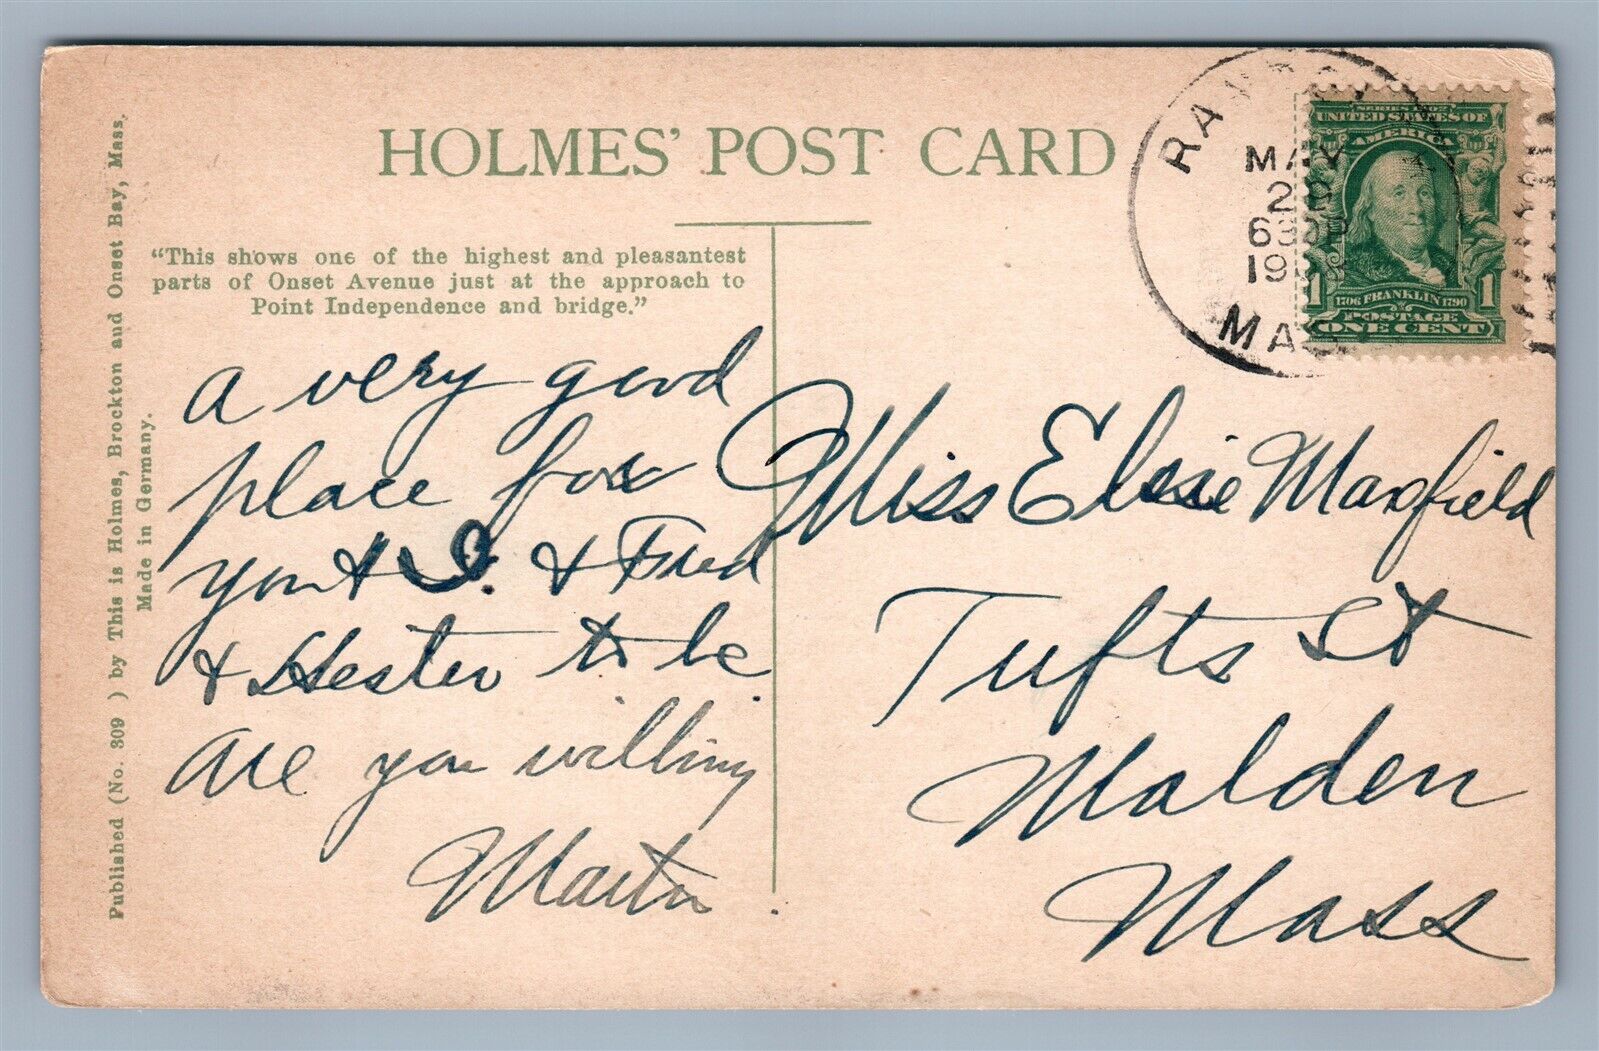 HOLMES' POST CARD
"This shows one of the highest and pleasantest
parts of Onset Avenue just at the approach to
Point Independence and bridge."
a very good
place for
you & I. & Fred
& Hester to be
are you willing
Martin.
Miss Elsie Maxfield
Tufts St
Malden
Mass
MAY
MASS
SERIES 1902
UNITED STATES OF
AMERICA
1706 FRANKLIN 1790
1 1
POSTAGE
ONE CENT
Published (No. 309 ) by This is Holmes, Brockton and Onset Bay, Mass.
Made in Germany.